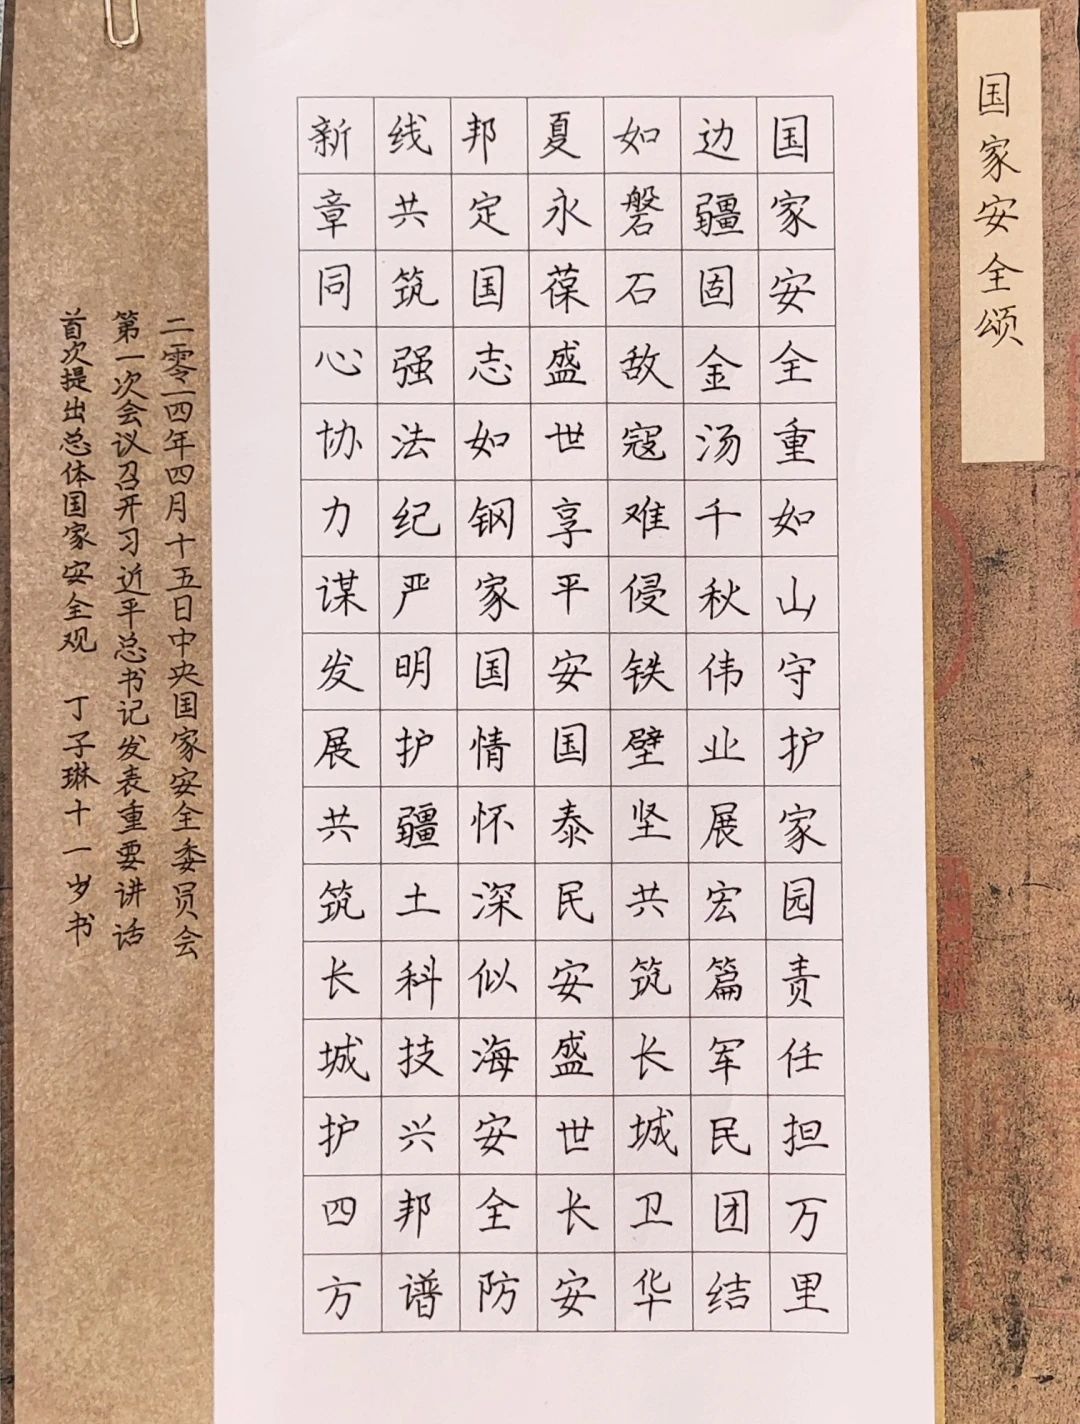 国家安全颂
国家安全重如山守护家园责任担万里
边疆固金汤千秋伟业展宏篇军民团结
如磐石敌寇难侵铁壁坚共筑长城卫华
夏永葆盛世享平安国泰民安盛世长安
邦定国志如钢家国情怀深似海安全防
线共筑强法纪严明护疆土科技兴邦谱
新章同心协力谋发展共筑长城护四方
二零一四年四月十五日中央国家安全委员会
第一次会议召开习近平总书记发表重要讲话
首次提出总体国家安全观 丁子琳十一岁书